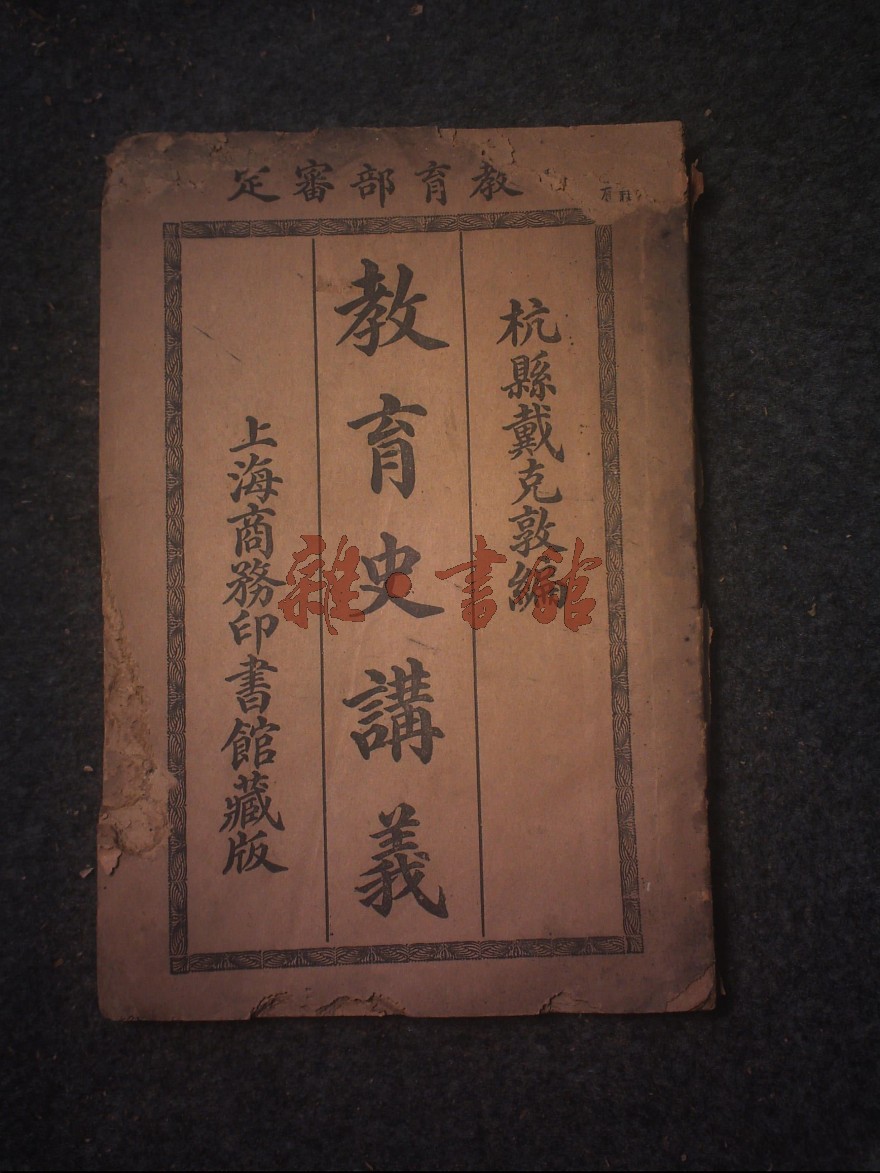 教育部審定
杭縣戴克敦編
教育史講義
上海商務印書館藏版
雜·書館